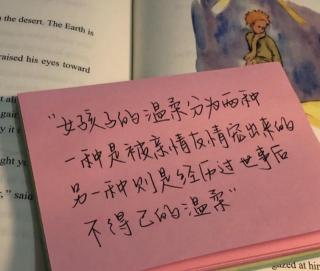 n the desert. The Earth is
raised his eyes toward
“女孩子的温柔分为两种
一种是被亲情友情宠出来的
另一种则是经历过世事后
不得已的温柔”
" said
gazed at him